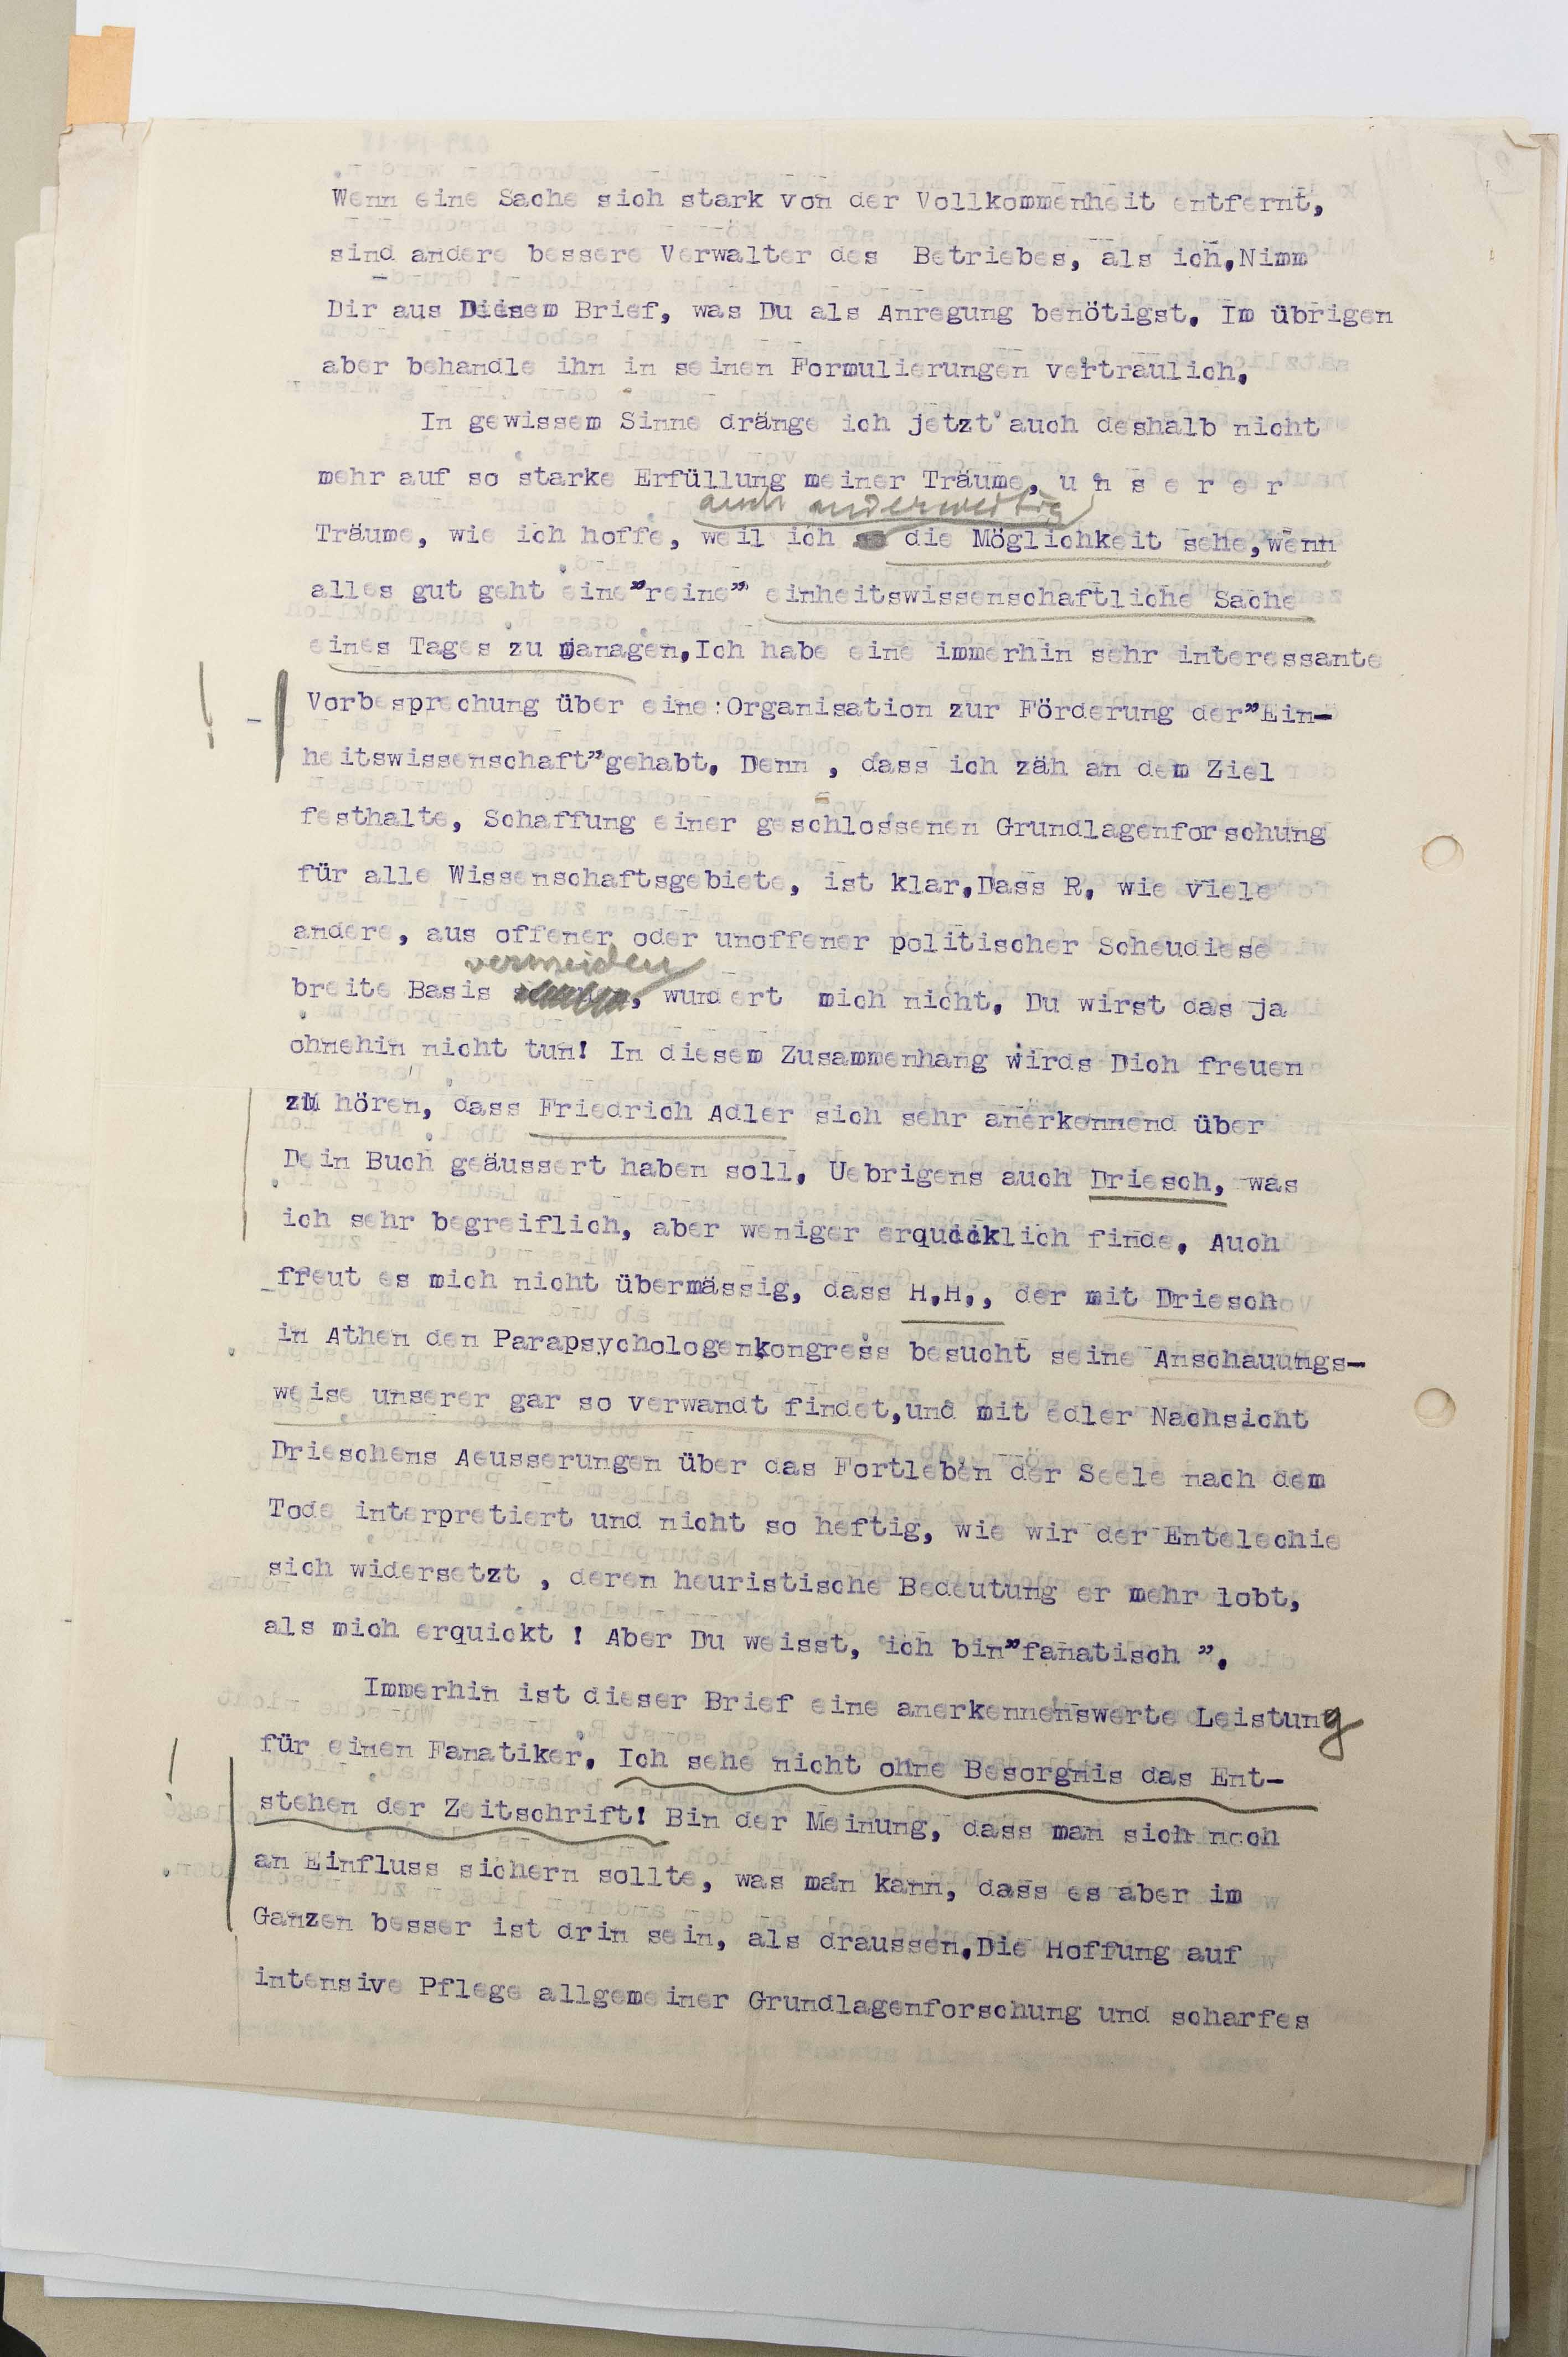 Wenn eine Sache sich stark von der Vollkommenheit entfernt,
sind andere bessere Verwalter des Betriebes, als ich.Nimm
Dir aus Diesem Brief, was Du als Anregung benötigst. Im übrigen
aber behandle ihn in seinen Formulierungen vertraulich.
In gewissem Sinne dränge ich jetzt auch deshalb nicht
mehr auf so starke Erfüllung meiner Träume, u n s e r e r
auch anderweitig
Träume, wie ich hoffe, weil ich die Möglichkeit sehe,wenn
alles gut geht eine"reine" einheitswissenschaftliche Sache
eines Tages zu managen.Ich habe eine immerhin sehr interessante
Vorbesprechung über eine:Organisation zur Förderung der"Ein-
heitswissenschaft"gehabt. Denn , dass ich zäh an dem Ziel
festhalte, Schaffung einer geschlossenen Grundlagenforschung
für alle Wissenschaftsgebiete, ist klar.Dass R. wie viele
andere, aus offener oder unoffener politischer Scheudiese
vermeiden
breite Basis , wundert mich nicht. Du wirst das ja
ohnehin nicht tun! In diesem Zusammenhang wirds Dich freuen
zu hören, dass Friedrich Adler sich sehr anerkennend über
Dein Buch geäussert haben soll. Uebrigens auch Driesch, was
ich sehr begreiflich, aber weniger erquicklich finde. Auch
freut es mich nicht übermässig, dass H.H., der mit Driesch
in Athen den Parapsychologenkongress besucht seine Anschauungs-
weise unserer gar so verwandt findet,und mit edler Nachsicht
Drieschens Aeusserungen über das Fortleben der Seele nach dem
Tode interpretiert und nicht so heftig, wie wir der Entelechie
sich widersetzt , deren heuristische Bedeutung er mehr lobt,
als mich erquickt ! Aber Du weisst, ich bin"fanatisch ".
Immerhin ist dieser Brief eine anerkennenswerte Leistung
für einen Fanatiker. Ich sehe nicht ohne Besorgnis das Ent-
stehen der Zeitschrift! Bin der Meinung, dass man sich noch
an Einfluss sichern sollte, was man kann, dass es aber im
Ganzen besser ist drin sein, als draussen.Die Hoffung auf
intensive Pflege allgemeiner Grundlagenforschung und scharfes